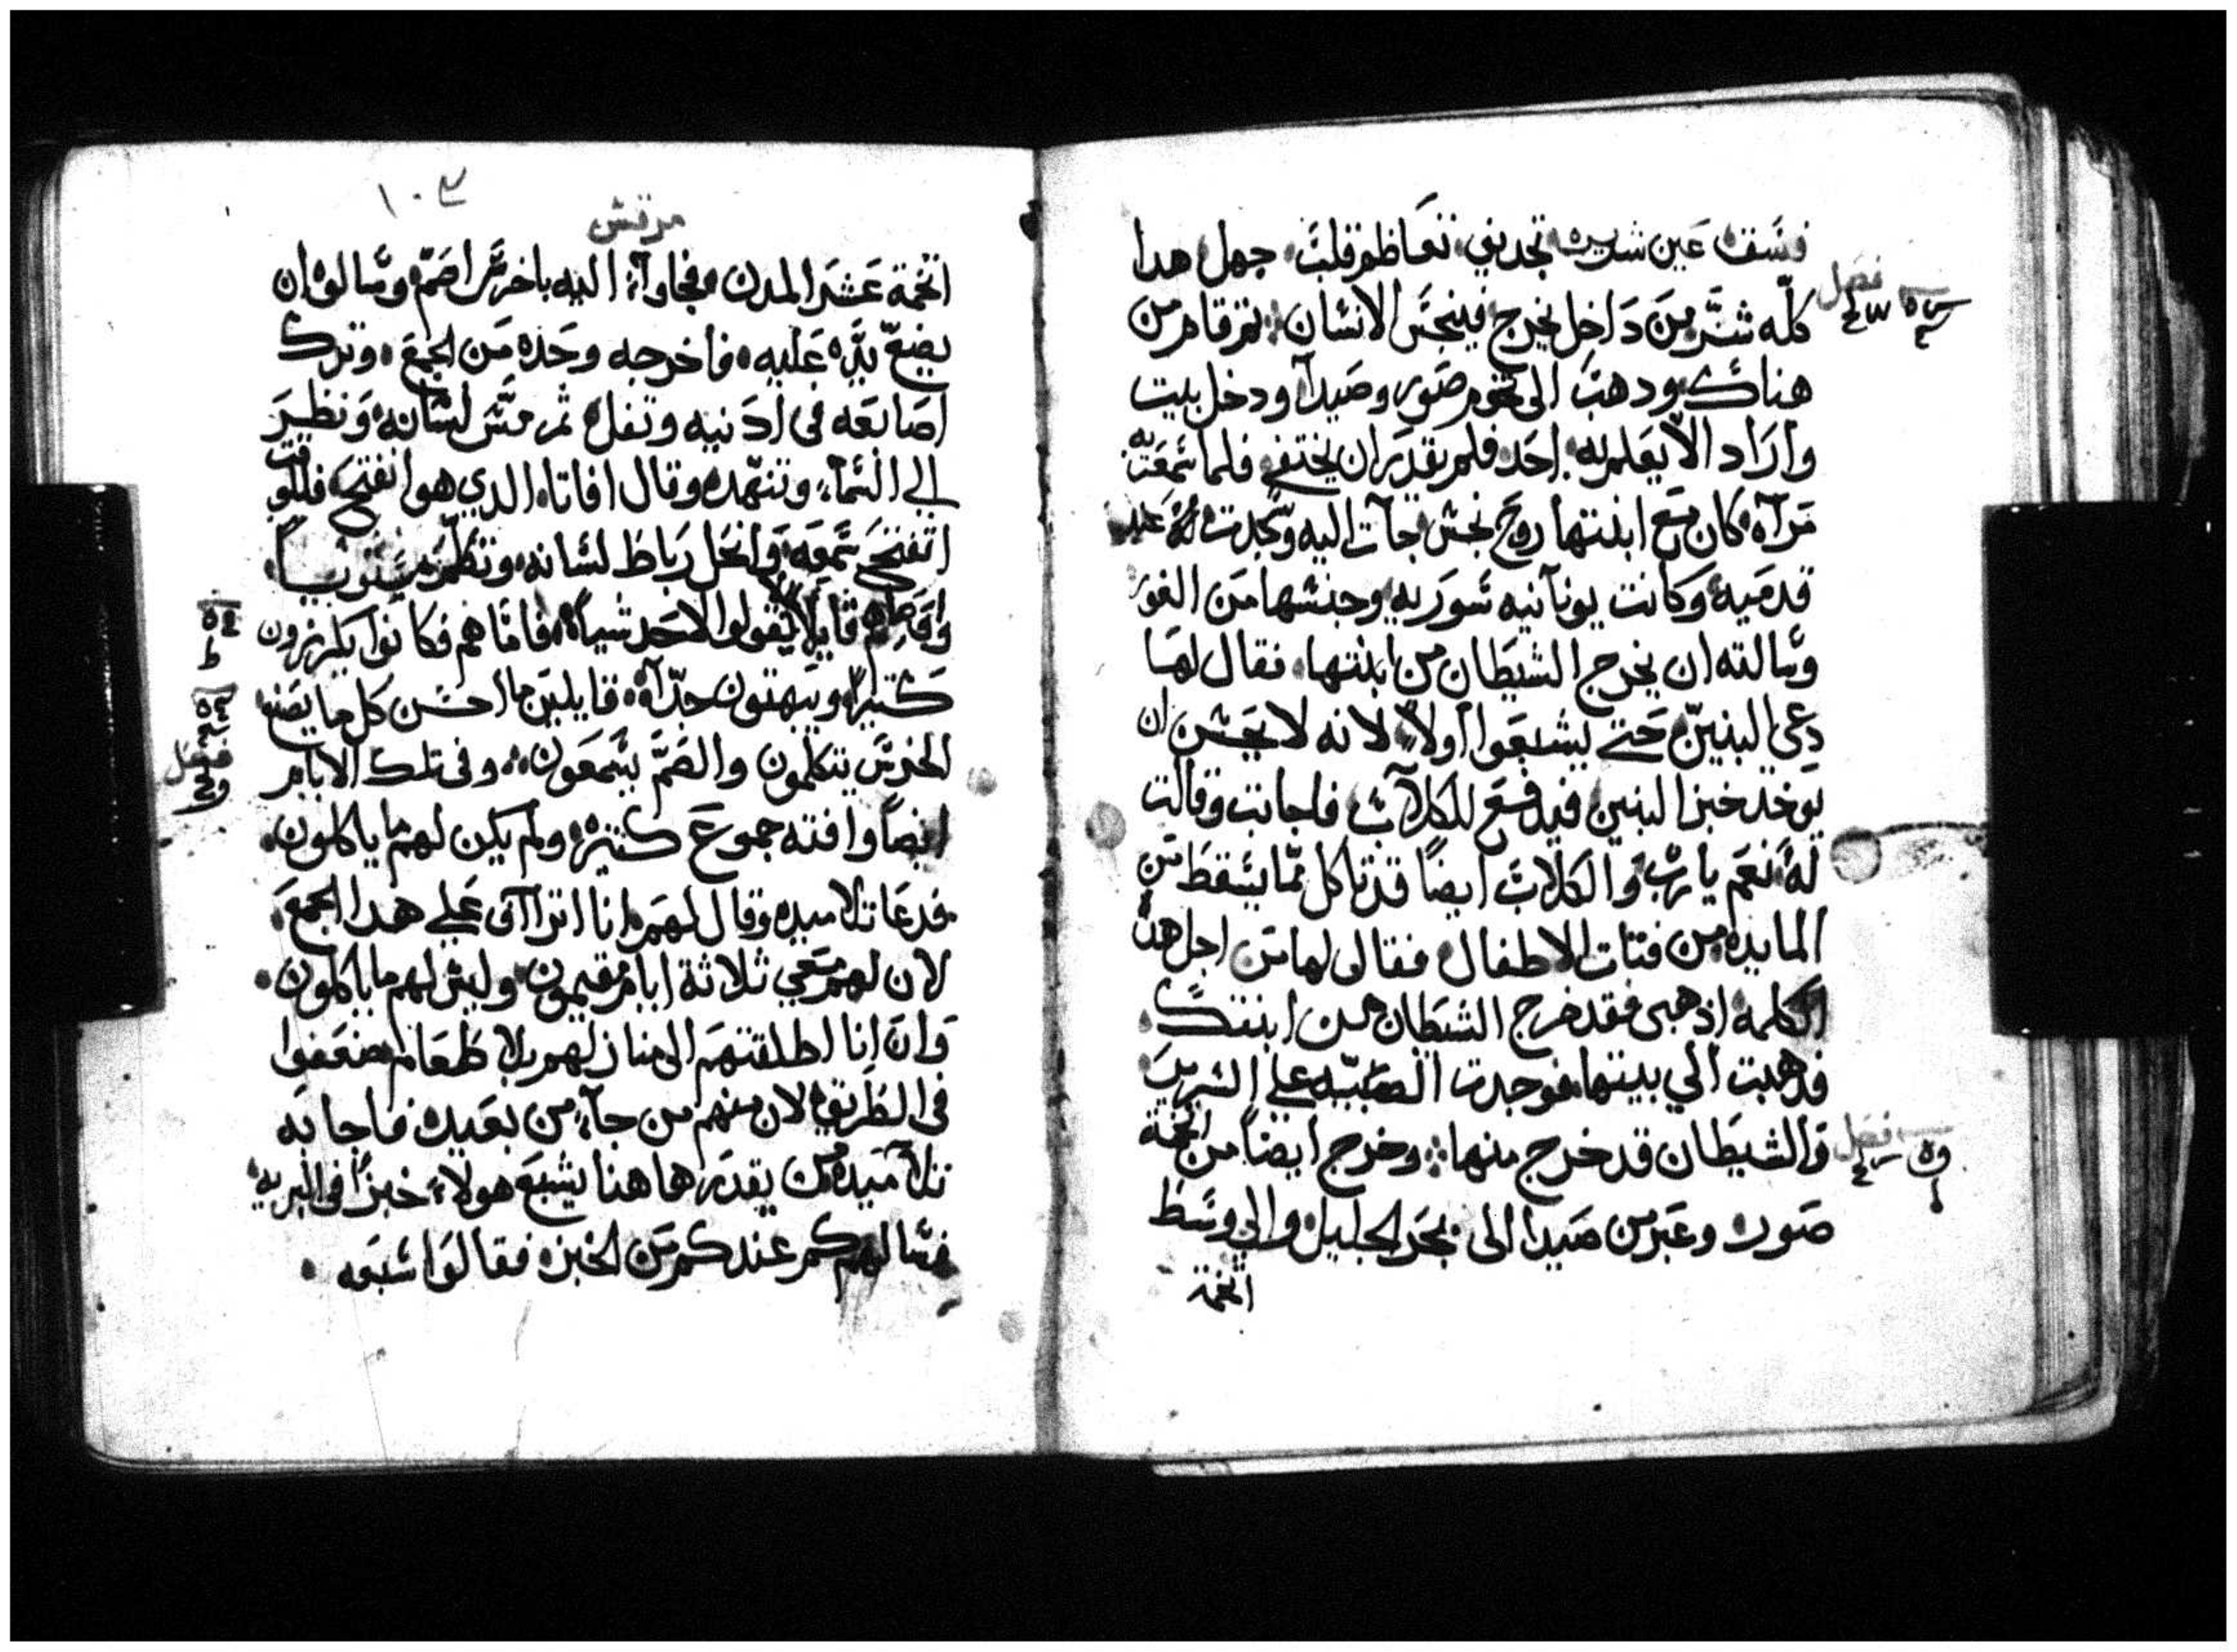 فسق عين شريره تجديف تعاظم قلب جهل هدا
فصل
كله شر من داخل يخرج فينجس الانسان ثم قام من
هناك ودهب الى تخوم صور وصيدا ودخل بيت
واراد الا يعلم به احد فلم يقدر ان يختفي فلما سمعت به
مراه كان مع ابنتها روح نجس جات اليه وسجدت له عند
قدميه وكانت يونانيه سوريه وجنسها من الغور
وسالته ان يخرج الشيطان من ابنتها فقال لها
دعي البنين حتي يشبعوا اولا لانه لا يحسن ان
يوخد خبز البنين فيدفع للكلاب فاجابت وقالت
له نعم يا رب والكلاب ايضا قد تاكل مما يسقط من
المايده من فتات الاطفال فقال لها من اجل هده
الكلمه ادهبى فقد خرج الشيطان من ابنتك
فدهبت الي بيتها فوجدت الصبيه علي السرير
فصل
والشيطان قد خرج منها وخرج ايضا من تخمة
صور وعبر من صيدا الى بحر الجليل والي وسط
اتخمة
١٠٣
مرقس
اتخمة عشر المدن فجاوا اليه باخرس اصم وسالوه ان
يضع يده عليه فاخرجه وحده من الجمع وترك
اصابعه في ادنيه وتفل ثم مس لسانه ونظر
الي السماء وتنهد وقال افاتا الدي هو انفتح فللوقت
انفتح سمعه وانحل رباط لسانه وتكلم مستويا
واوصاهم قايلا لا تقولوا لاحد شيا فاما هم فكانوا يكرزون
كثيرا ويبهتون جدا قايلين ما احسن كل ما يصنع
الخرس يتكلمون والصم يسمعون وفى تلك الايام
فصل
ايضا وافته جموع كتيره ولم يكن لهم ما ياكلون
فدعا تلاميده وقال لهم انا اتراأف علي هدا الجمع
لان لهم معي ثلاثة ايام مقيمون وليس لهم ما ياكلون
وان انا اطلقتهم الى منازلهم بلا طعام ضعفوا
في الطريق لان منهم من جاء من بعيد فاجابه
تلاميده من يقدر هاهنا يشبع هولاء خبزا فى البريه
فسالهم كم عندكم من الخبز فقالوا سبعه